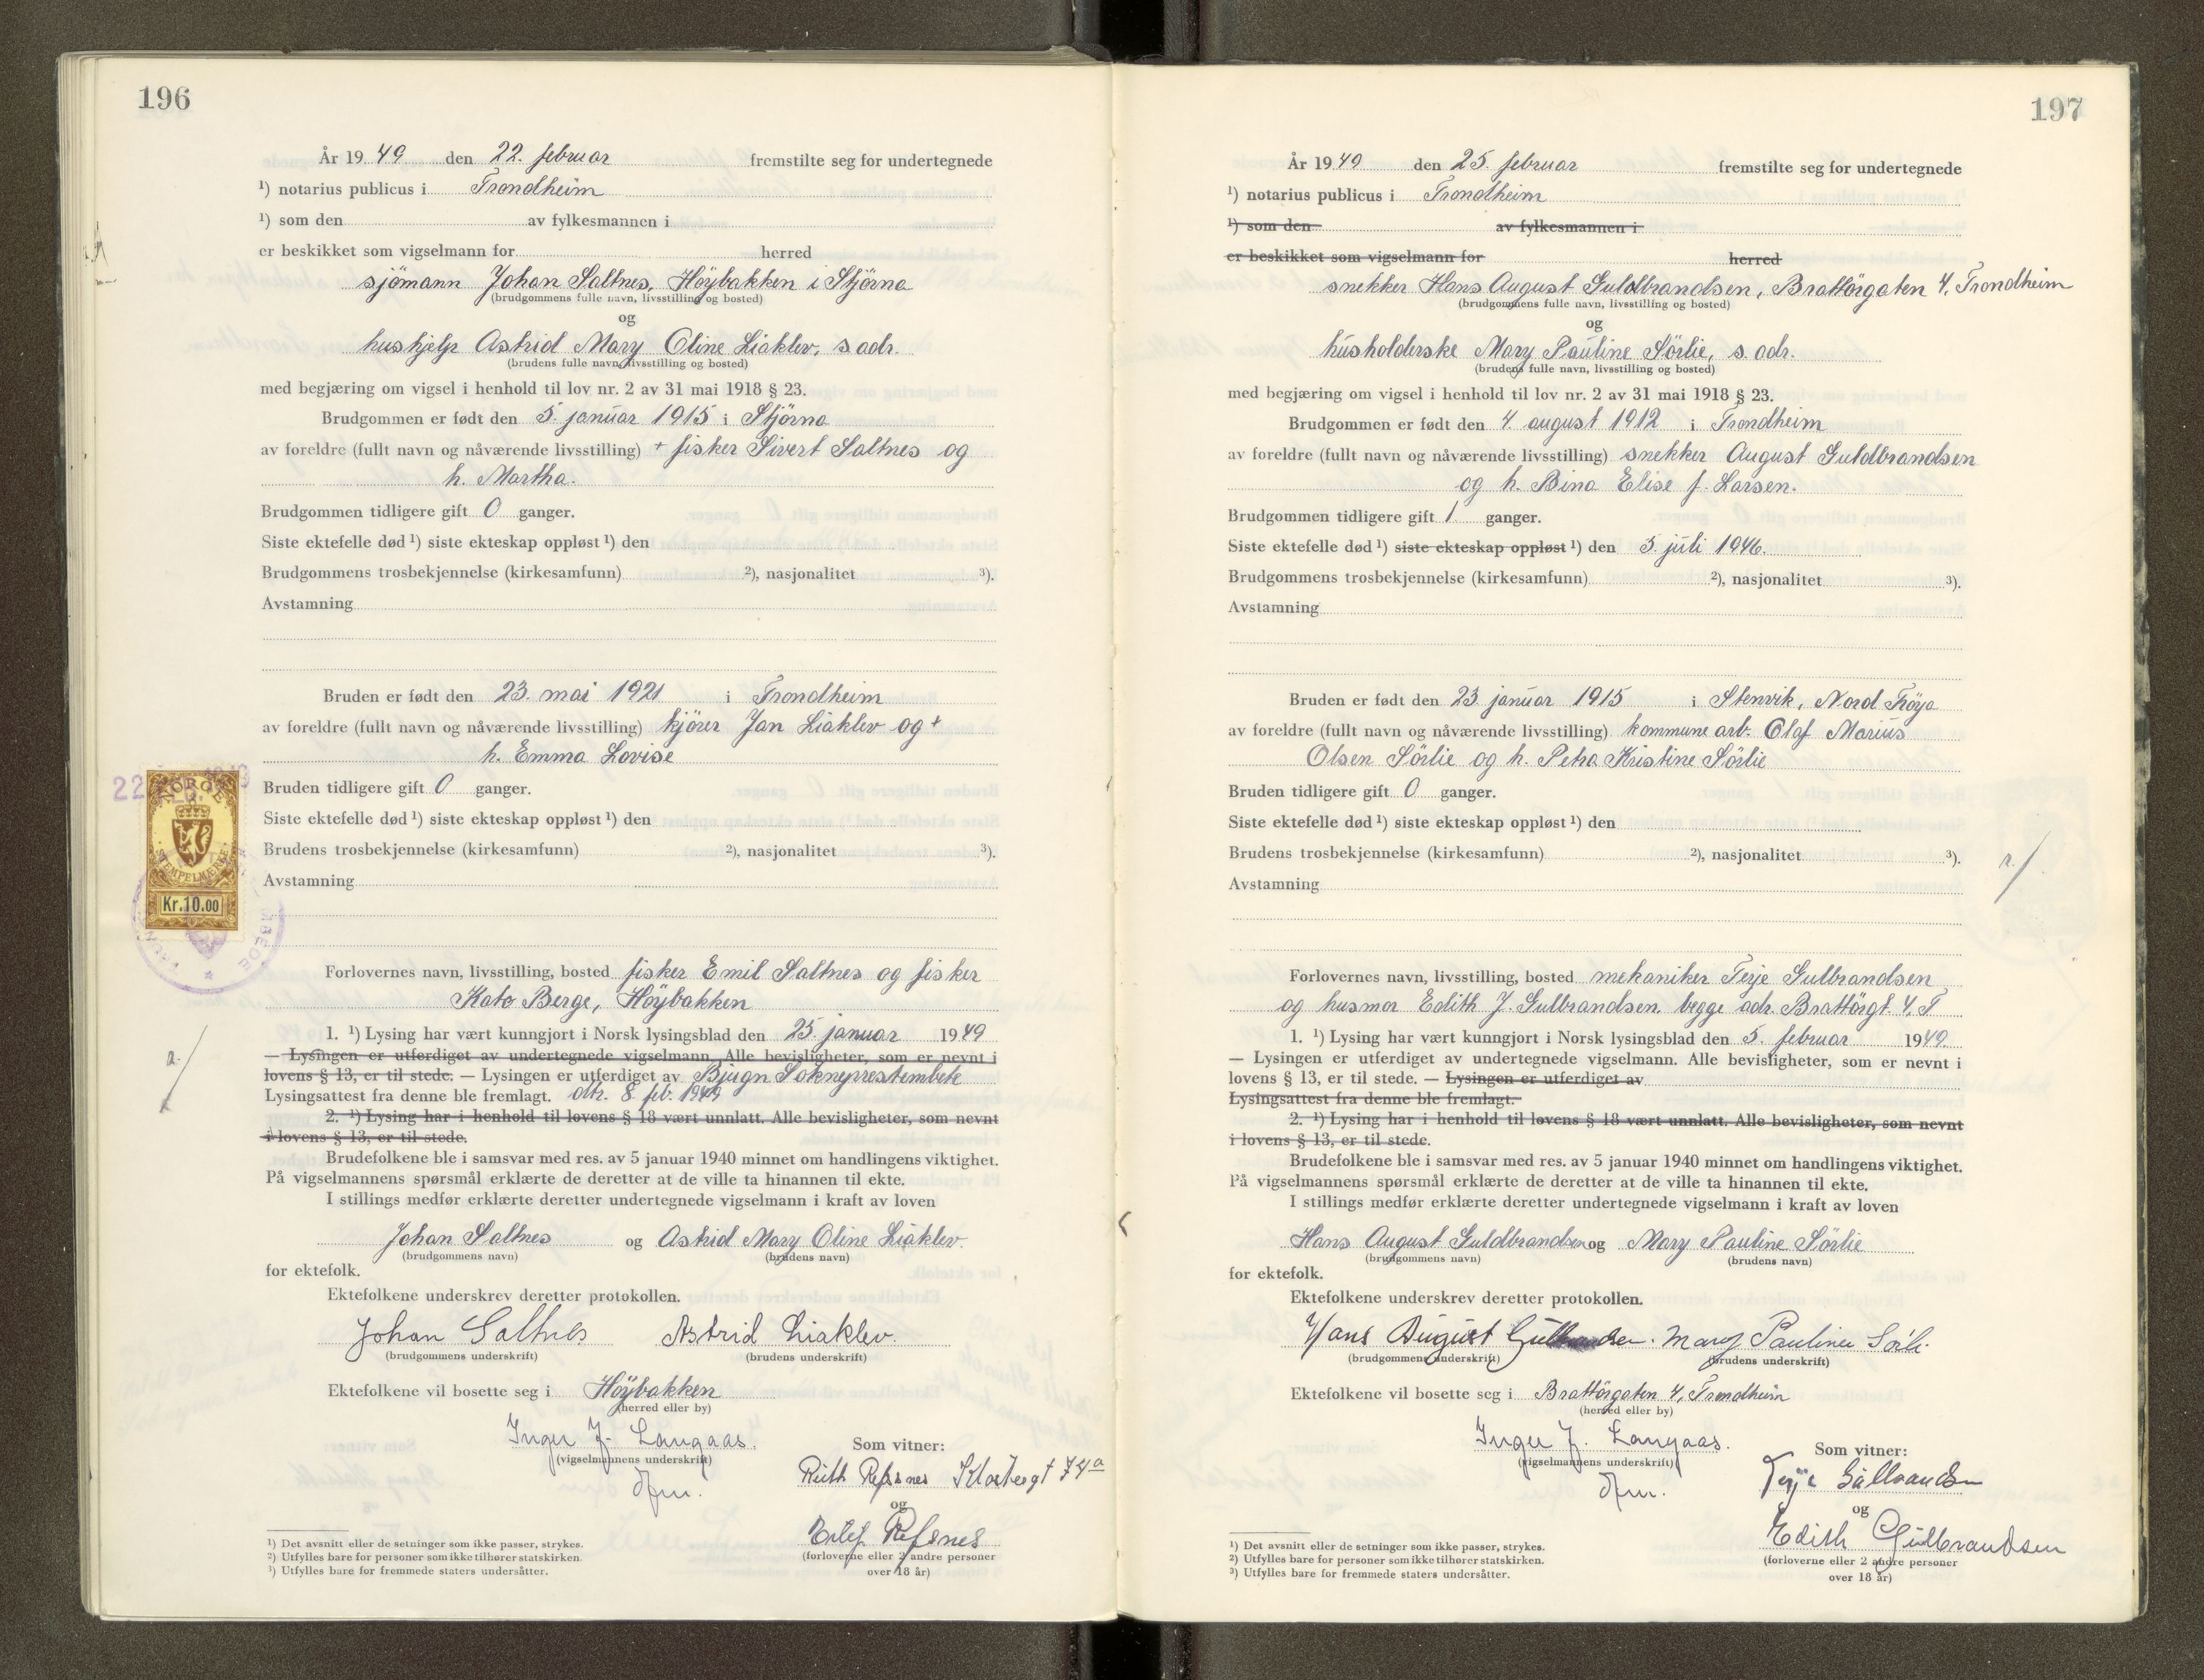 196
År 1949 den 22. februar fremstilte seg for undertegnede
¹) notarius publicus i Trondheim
¹) som den av fylkesmannen i
er beskikket som vigselmann for herred
sjömann Johan Saltnes, Höybakken i Stjörna
(brudgommens fulle navn, livsstilling og bosted)
og
hushjelp Astrid Mary Oline Liaklev, s. adr.
(brudens fulle navn, livsstilling og bosted)
med begjæring om vigsel i henhold til lov nr. 2 av 31 mai 1918 § 23.
Brudgommen er født den 5. januar 1915 i Stjörna
av foreldre (fullt navn og nåværende livsstilling) + fisker Sivert Saltnes og
h. Martha.
Brudgommen tidligere gift 0 ganger.
Siste ektefelle død ¹) siste ekteskap oppløst ¹) den
Brudgommens trosbekjennelse (kirkesamfunn) ²), nasjonalitet ³).
Avstamning
Bruden er født den 23. mai 1921 i Trondheim
av foreldre (fullt navn og nåværende livsstilling) kjörer Jan Liaklev og +
h. Emma Lovise
Bruden tidligere gift 0 ganger.
Siste ektefelle død ¹) siste ekteskap oppløst ¹) den
Brudens trosbekjennelse (kirkesamfunn) ²), nasjonalitet ³).
Avstamning
22
NORGE
STEMPELMERKE
Kr.10.00
Forlovernes navn, livsstilling, bosted fisker Emil Saltnes og fisker
Kato Berge, Höybakken
1. ¹) Lysing har vært kunngjort i Norsk lysingsblad den 25 januar 1949
— Lysingen er utferdiget av undertegnede vigselmann. Alle bevisligheter, som er nevnt i
lovens § 13, er til stede. — Lysingen er utferdiget av Bjugn Sokneprestembete
Lysingsattest fra denne ble fremlagt. att. 8. feb. 1949
2. ¹) Lysing har i henhold til lovens § 18 vært unnlatt. Alle bevisligheter, som nevnt
i lovens § 13, er til stede.
Brudefolkene ble i samsvar med res. av 5 januar 1940 minnet om handlingens viktighet.
På vigselmannens spørsmål erklærte de deretter at de ville ta hinannen til ekte.
I stillings medfør erklærte deretter undertegnede vigselmann i kraft av loven
Johan Saltnes og Astrid Mary Oline Liaklev.
(brudgommens navn) (brudens navn)
for ektefolk.
Ektefolkene underskrev deretter protokollen.
Johan Saltnes Astrid Liaklev.
(brudgommens underskrift) (brudens underskrift)
Ektefolkene vil bosette seg i Höybakken
(herred eller by)
Inger J. Langaas.
(vigselmannens underskrift)
dfm.
Som vitner:
Ruth Refsnes
og
Refsnes
(forloverne eller 2 andre personer
over 18 år)
¹) Det avsnitt eller de setninger som ikke passer, strykes.
²) Utfylles bare for personer som ikke tilhører statskirken.
³) Utfylles bare for fremmede staters undersåtter.
197
År 1949 den 25. februar fremstilte seg for undertegnede
¹) notarius publicus i Trondheim
¹) som den av fylkesmannen i
er beskikket som vigselmann for herred
snekker Hans August Guldbrandsen, Brattörgaten 4, Trondheim
(brudgommens fulle navn, livsstilling og bosted)
og
husholderske Mary Pauline Sörlie, s. adr.
(brudens fulle navn, livsstilling og bosted)
med begjæring om vigsel i henhold til lov nr. 2 av 31 mai 1918 § 23.
Brudgommen er født den 4. august 1912 i Trondheim
av foreldre (fullt navn og nåværende livsstilling) snekker August Guldbrandsen
og h. Bina Elise f. Larsen.
Brudgommen tidligere gift 1 ganger.
Siste ektefelle død ¹) siste ekteskap oppløst ¹) den 5. juli 1946.
Brudgommens trosbekjennelse (kirkesamfunn) ²), nasjonalitet ³).
Avstamning
Bruden er født den 23 januar 1915 i Stenvik, Nord Fröya
av foreldre (fullt navn og nåværende livsstilling) kommune arb. Olaf Marius
Olsen Sörlie og h. Petra Kristine Sörlie
Bruden tidligere gift 0 ganger.
Siste ektefelle død ¹) siste ekteskap oppløst ¹) den
Brudens trosbekjennelse (kirkesamfunn) ²), nasjonalitet ³).
Avstamning
Forlovernes navn, livsstilling, bosted mekaniker Terje Gulbrandsen
og husmor Edith J. Gulbrandsen. begge adr. Brattörgt. 4, T
1. ¹) Lysing har vært kunngjort i Norsk lysingsblad den 5. februar 1949.
— Lysingen er utferdiget av undertegnede vigselmann. Alle bevisligheter, som er nevnt i
lovens § 13, er til stede. — Lysingen er utferdiget av
Lysingsattest fra denne ble fremlagt.
2. ¹) Lysing har i henhold til lovens § 18 vært unnlatt. Alle bevisligheter, som nevnt
i lovens § 13, er til stede.
Brudefolkene ble i samsvar med res. av 5 januar 1940 minnet om handlingens viktighet.
På vigselmannens spørsmål erklærte de deretter at de ville ta hinannen til ekte.
I stillings medfør erklærte deretter undertegnede vigselmann i kraft av loven
Hans August Guldbrandsen og Mary Pauline Sörlie
(brudgommens navn) (brudens navn)
for ektefolk.
Ektefolkene underskrev deretter protokollen.
Hans August Mary Pauline Sörli.
(brudgommens underskrift) (brudens underskrift)
Ektefolkene vil bosette seg i Brattörgaten 4, Trondheim
(herred eller by)
Inger J. Langaas.
(vigselmannens underskrift)
dfm.
Som vitner:
Terje Gulbrandsen
og
Edith Gulbrandsen
(forloverne eller 2 andre personer
over 18 år)
¹) Det avsnitt eller de setninger som ikke passer, strykes.
²) Utfylles bare for personer som ikke tilhører statskirken.
³) Utfylles bare for fremmede staters undersåtter.